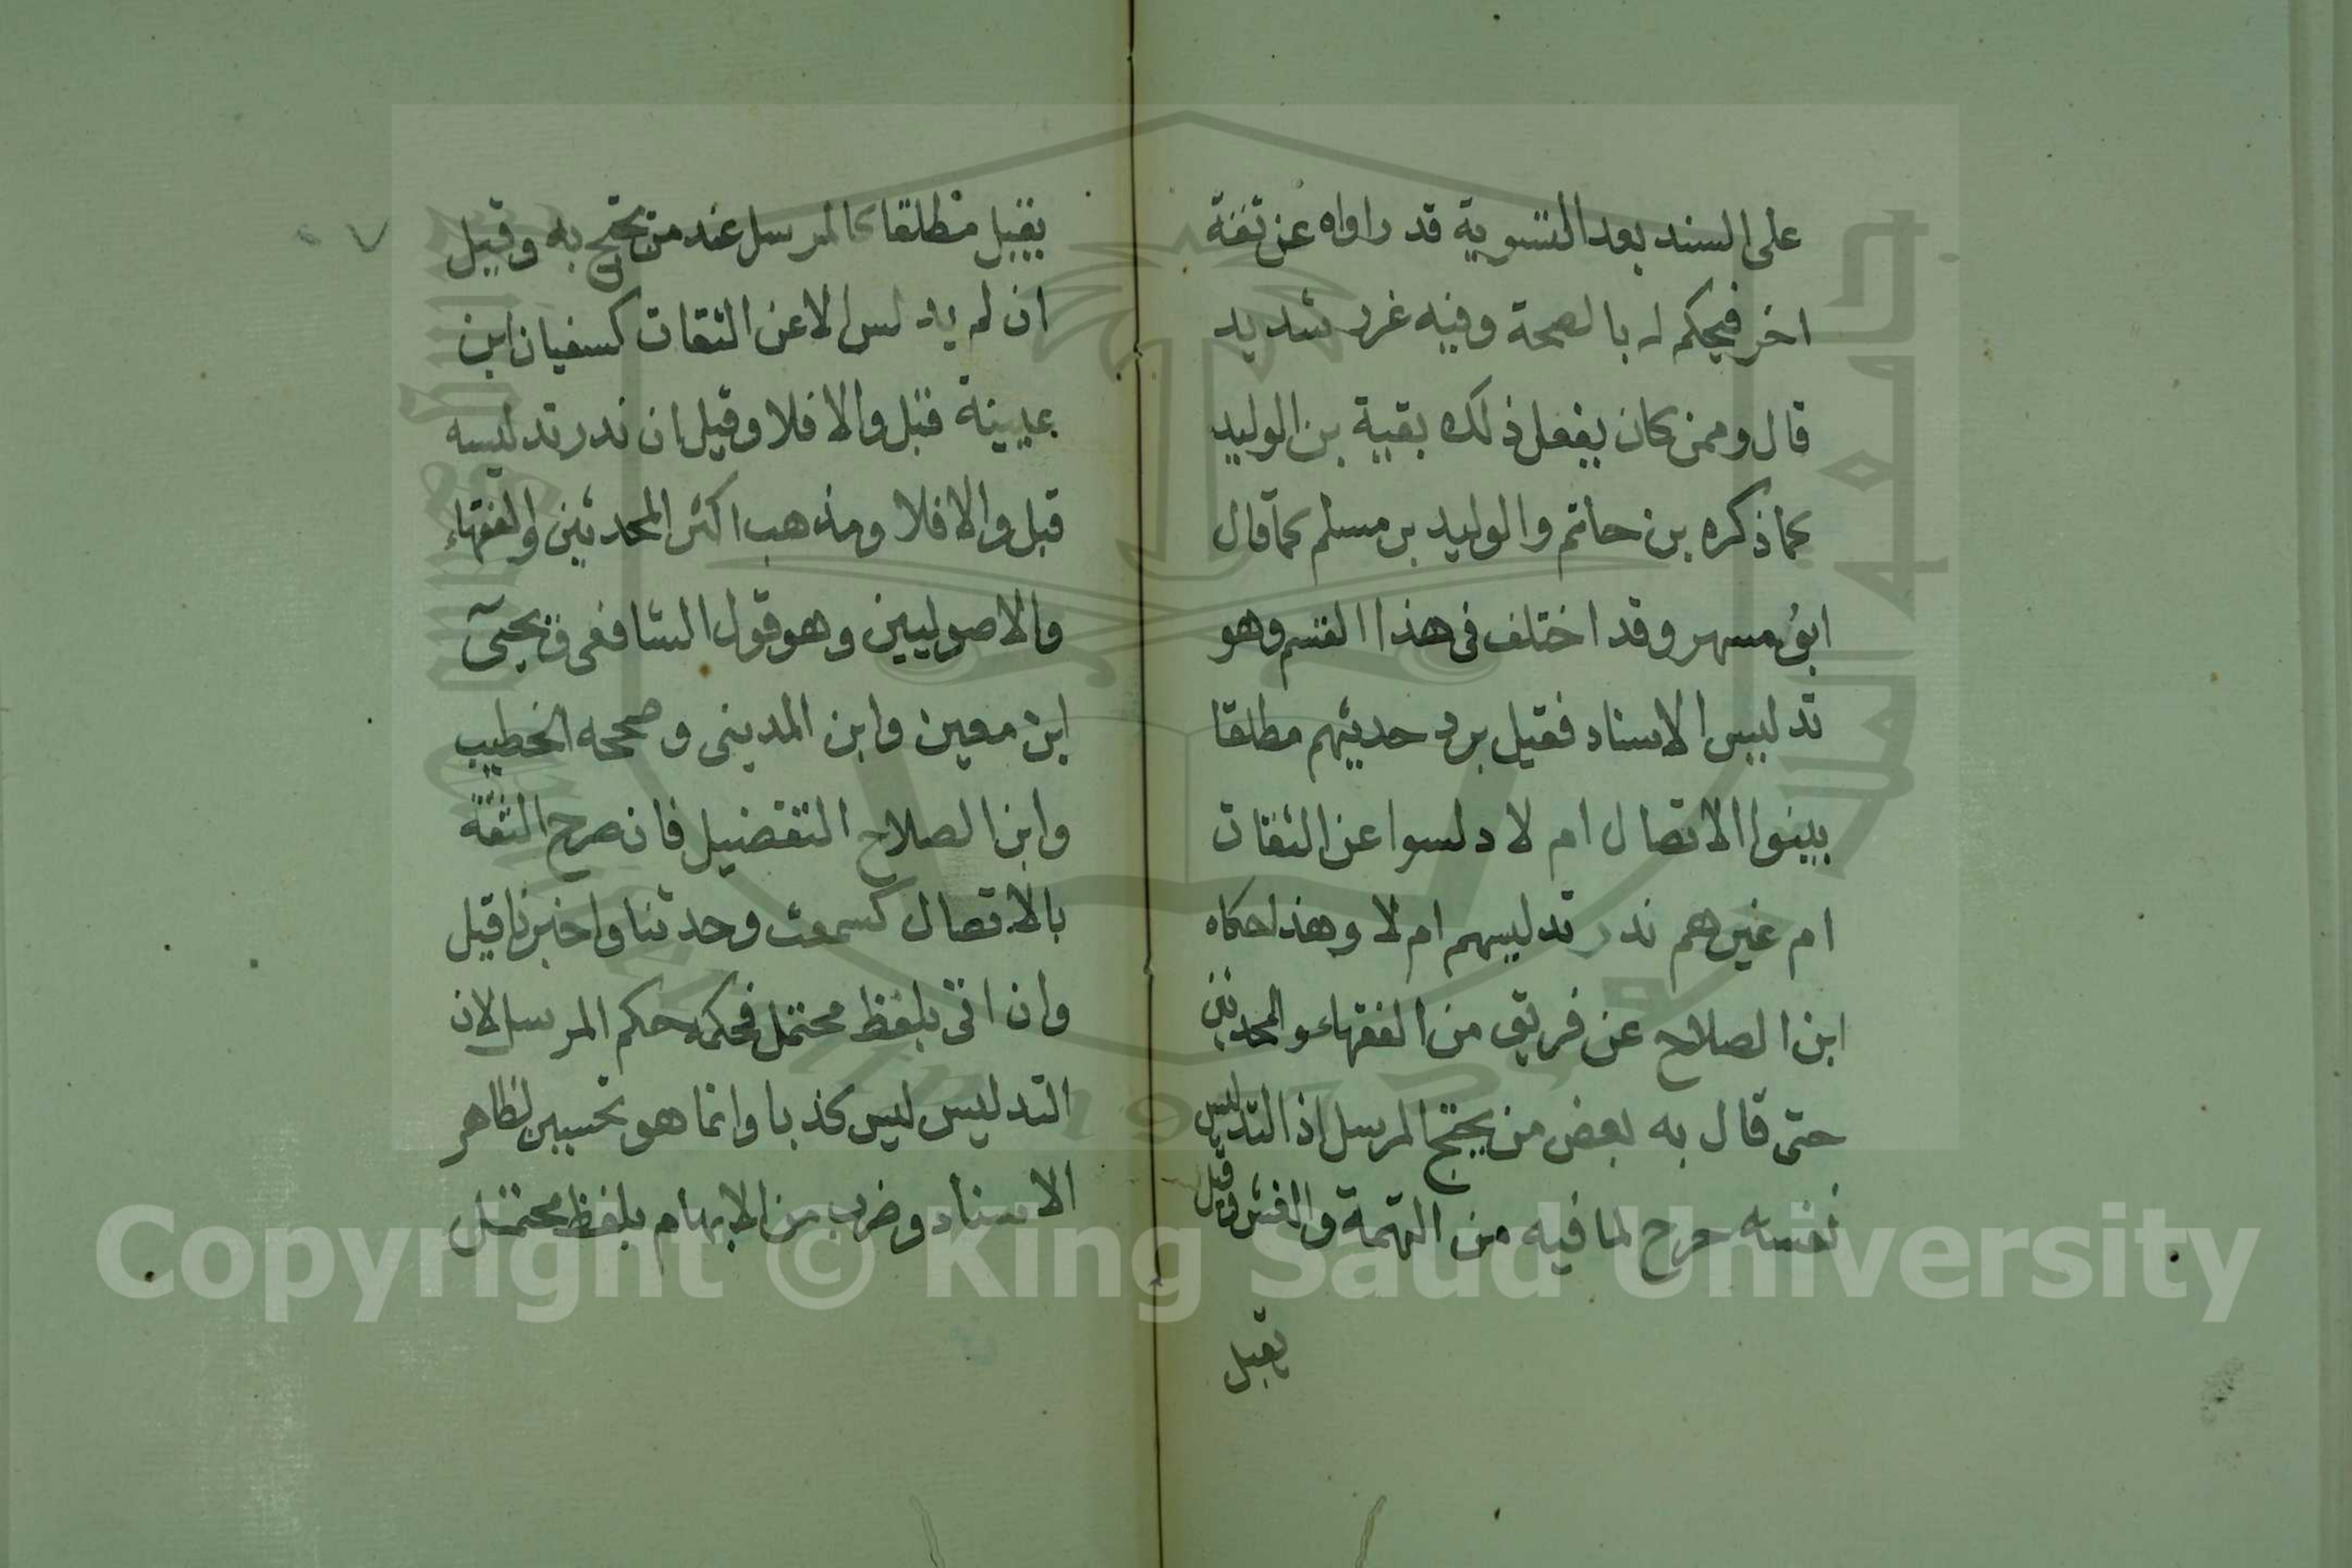 على السند بعد التسوية قد راواه عن ثقة
اخر فيحكم له بالصحة وفيه غرر شديد
قال وممن كان يفعل ذلك بقية بن الوليد
كما ذكره بن حاتم والوليد بن مسلم كما قال
ابو مسهر وقد اختلف في هذا القسم وهو
تدليس الاسناد فقيل يرد حديثهم مطلقا
بينوا الاتصال ام لا دلسوا عن الثقات
ام غيرهم ندر تدليسهم ام لا وهذا حكاه
ابن الصلاح عن فريق من الفقهاء والمحدثين
حتى قال به بعض من يحتج المرسل اذ التدليس
نفسه جرح لما فيه من التهمة والغش وقيل
يقبل
يقبل مطلقا كالمرسل عند من يحتج به وقيل
ان لم يدلس الا عن الثقات كسفيان ابن
عيينة قبل والا فلا وقيل ان ندر تدليسه
قبل والا فلا ومذهب اكثر المحدثين والفقهاء
والاصوليين وهو قول الشافعي ويحيى
ابن معين وابن المديني وصححه الخطيب
وابن الصلاح التفضيل فان صرح الثقة
بالاتصال كسمعت وحدثنا واخبرنا قبل
وان اتى بلفظ محتمل فحكمه حكم المرسل لان
التدليس ليس كذبا وانما هو تحسين لظاهر
الاسناد وضرب من الابهام بلفظ محتمل
٧
Copyright © King Saud University